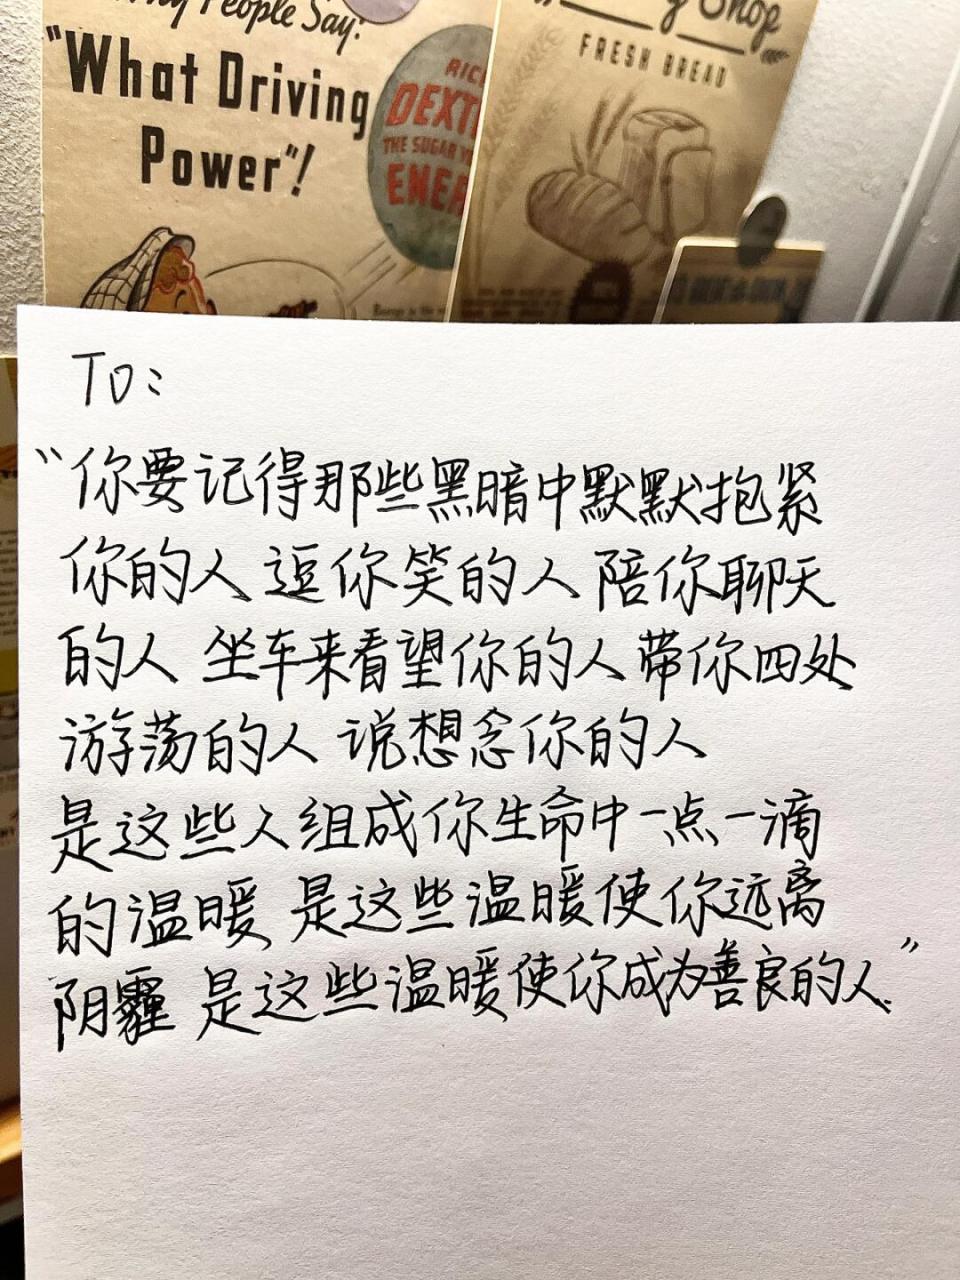 People Say:
"What Driving
Power"!
DEXT
THE SUGAR
ENER
Shop
FRESH BREAD
To:
"你要记得那些黑暗中默默抱紧
你的人 逗你笑的人 陪你聊天
的人 坐车来看望你的人 带你四处
游荡的人 说想念你的人
是这些人组成你生命中一点一滴
的温暖 是这些温暖使你远离
阴霾 是这些温暖使你成为善良的人"